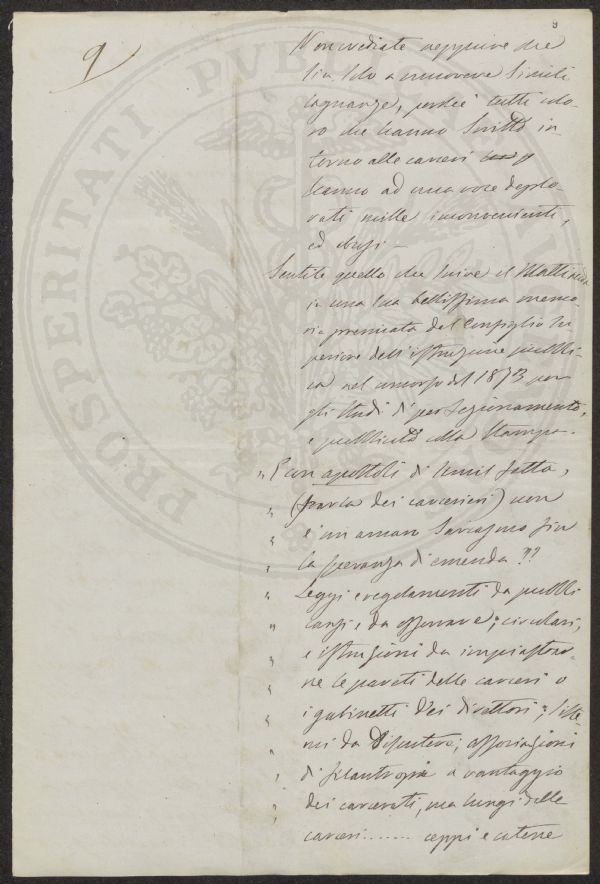 9
9
Non crediate neppure che
sia solo a muovere simili
lagnanze, perché tutti colo-
ro che hanno scritto in-
torno alle carceri
hanno ad una voce deplo-
rati mille inconvenienti,
ed abusi –
Sentite quello che scrive il
in una sua bellissima memo-
ria premiata dal Consiglio Su-
periore dell'istruzione pubbli-
ca nel concorso del 1873 per
gli studi di perfezionamento,
e pubblicata colla stampa.
" E con apostoli di simil fatta,
" (parla dei carcerieri) non
" è un amaro sarcasmo sin
" la speranza di emenda??
" Leggi e regolamenti da pubbli
" carsi, e da osservare; circolari,
" e istruzioni da
" ne le pareti delle carceri o
" i gabinetti dei direttori; siste-
" mi da discutere; associazioni
" di filantropia a vantaggio
" dei carcerati, ma lungi delle
carceri....... ceppi e catene
PROSPERITATI PUBLICAE